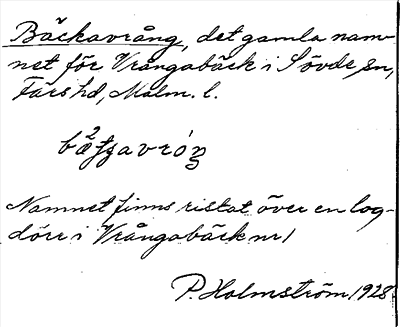 Bäckavrång, det gamla nam-
net för Vrångabäck i Sövde sn,
Färs hd, Malm. l.
Namnet finns ristat över en log-
dörr i Vrångabäck nr 1
P. Holmström 1928.